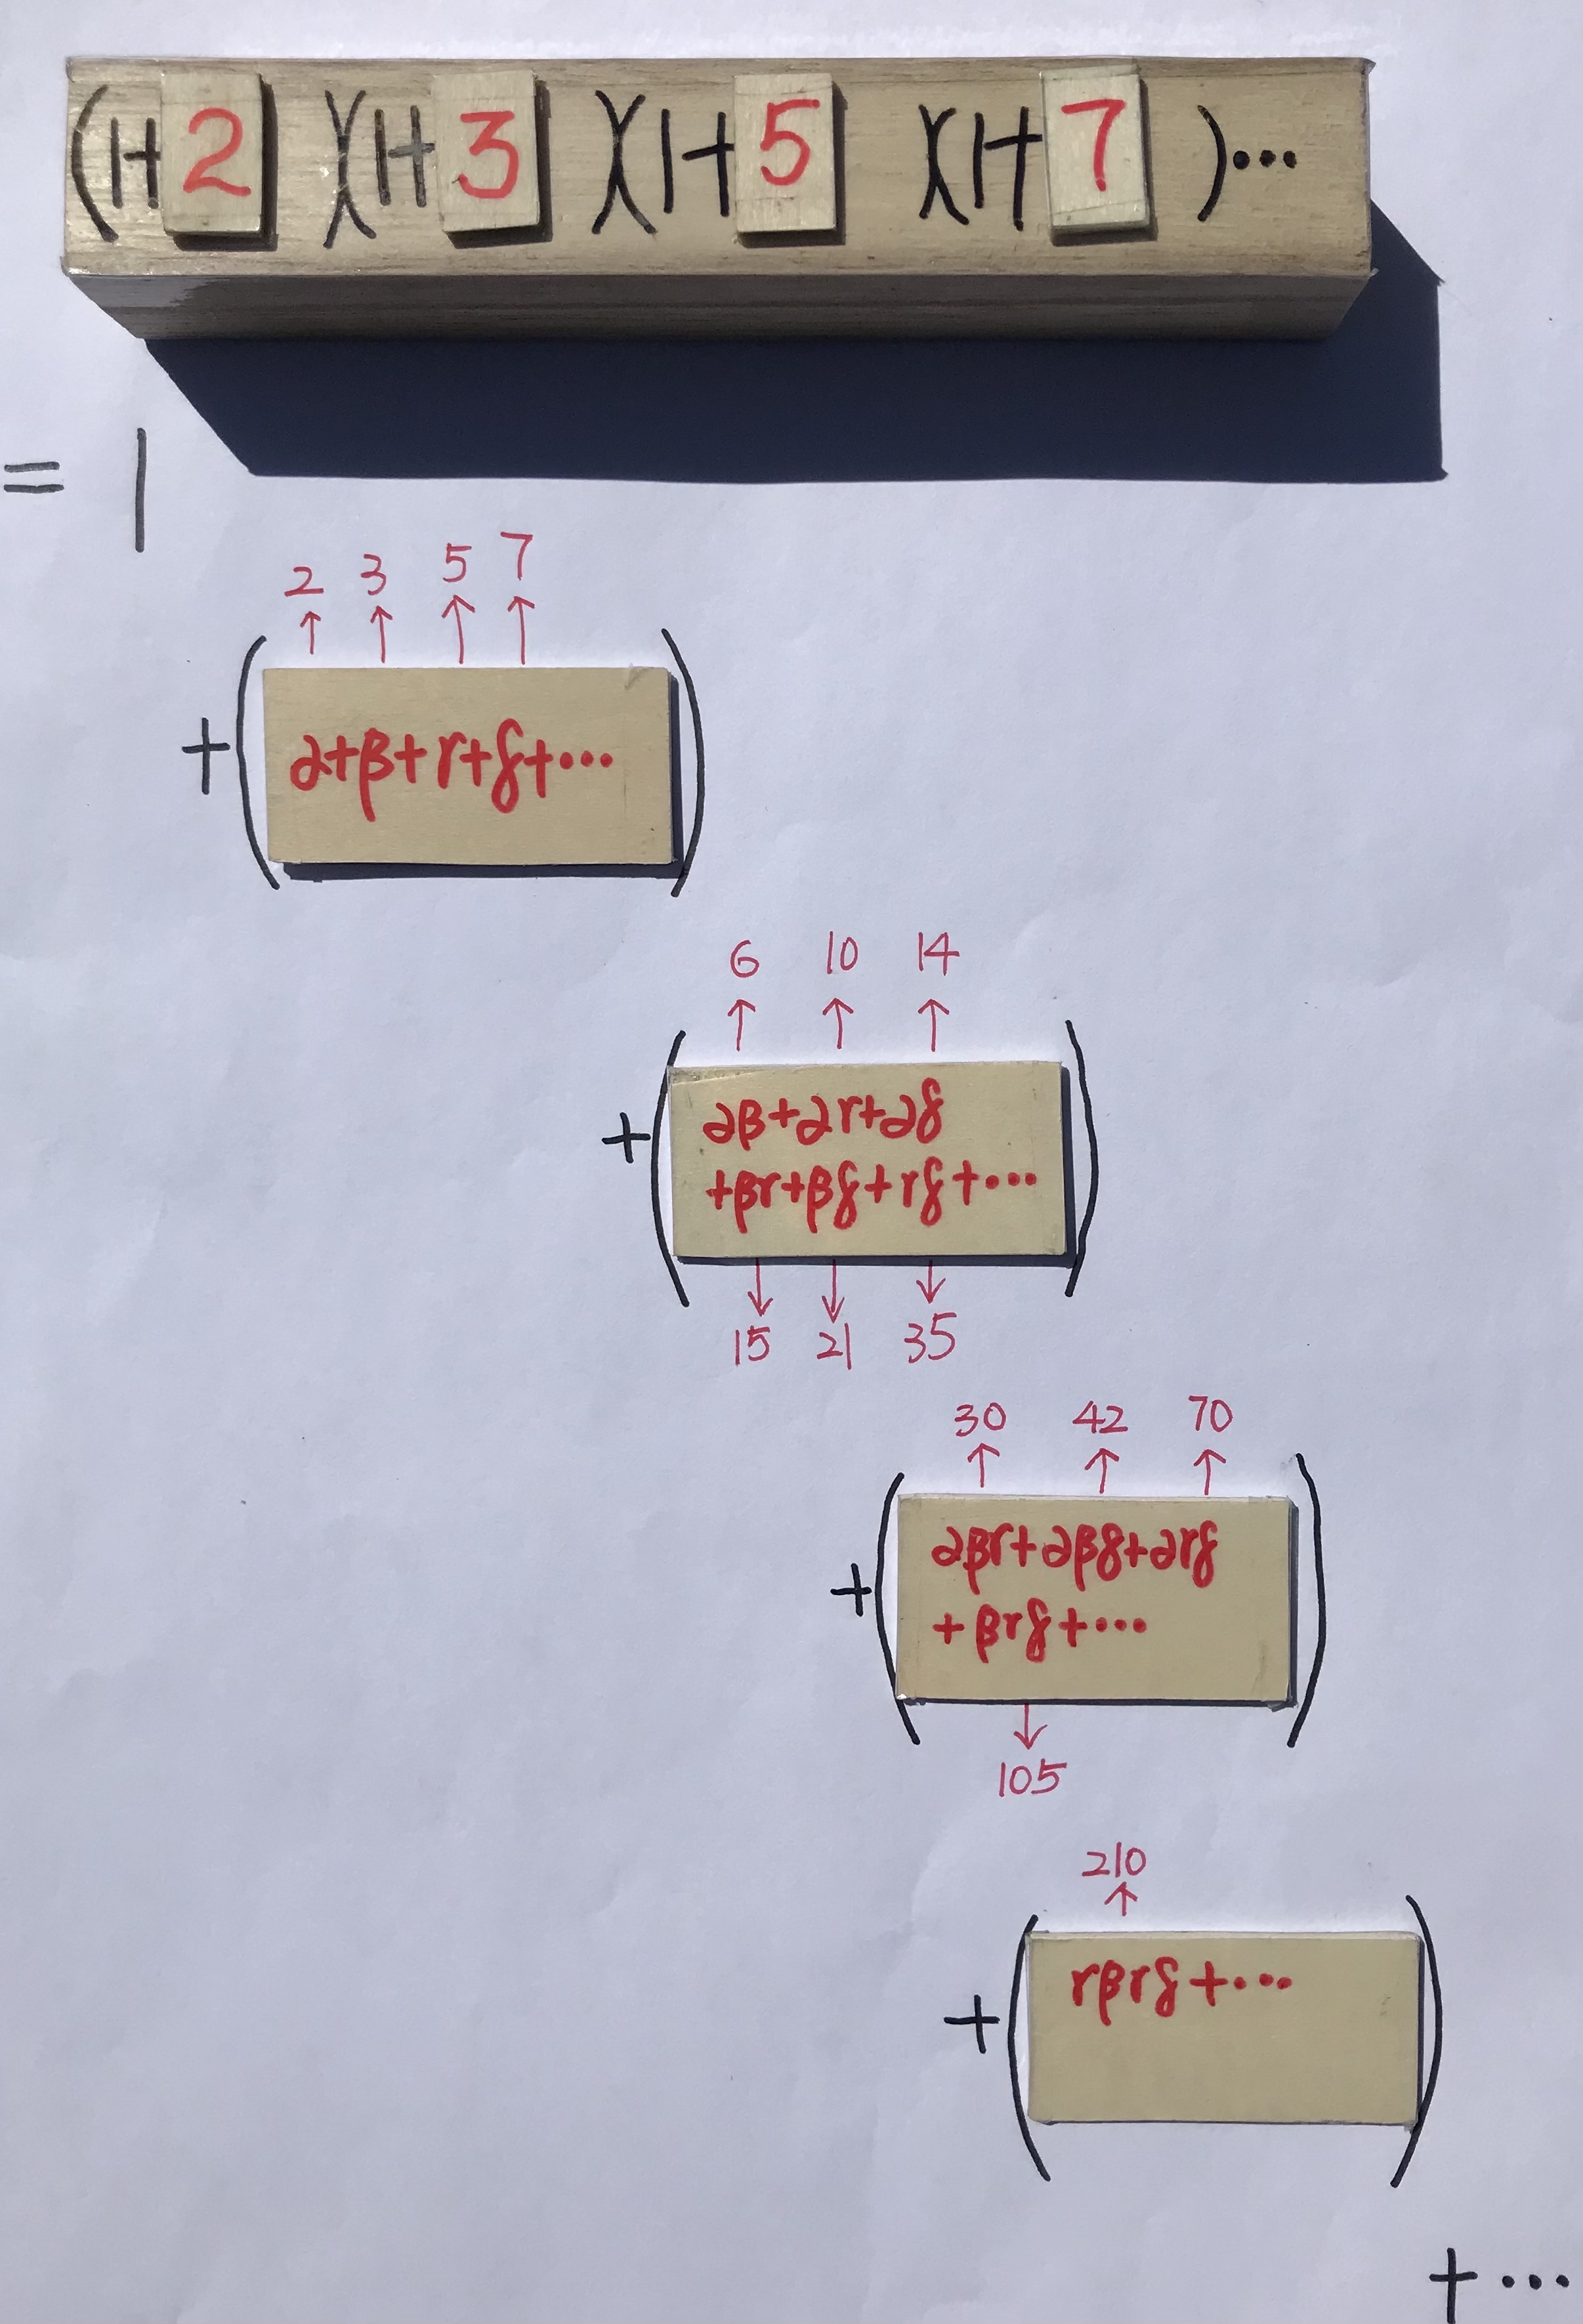 (1+2)(1+3)(1+5)(1+7)···
= 1
2 3 5 7
↑ ↑ ↑ ↑
+(α+β+γ+δ+···)
6 10 14
↑ ↑ ↑
+(αβ+αγ+αδ
+βγ+βδ+γδ+···)
↓ ↓ ↓
15 21 35
30 42 70
↑ ↑ ↑
+(αβγ+αβδ+αγδ
+βγδ+···)
↓
105
210
↑
+(γβγδ+···)
+···